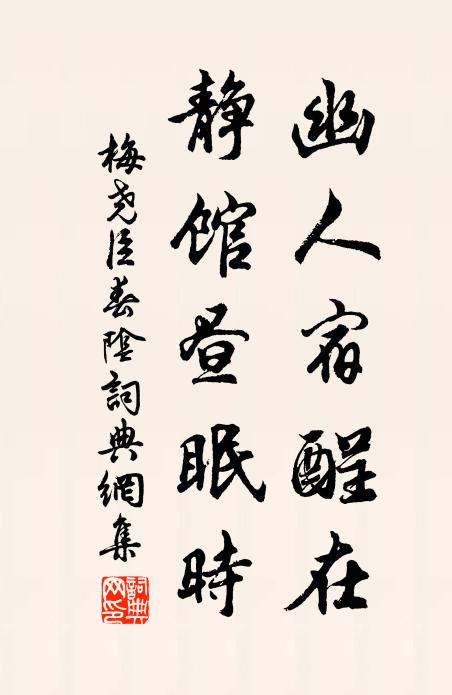 幽人宿酲在
静馆昼眠時
梅尧臣春陰詞典網集
詞典网印